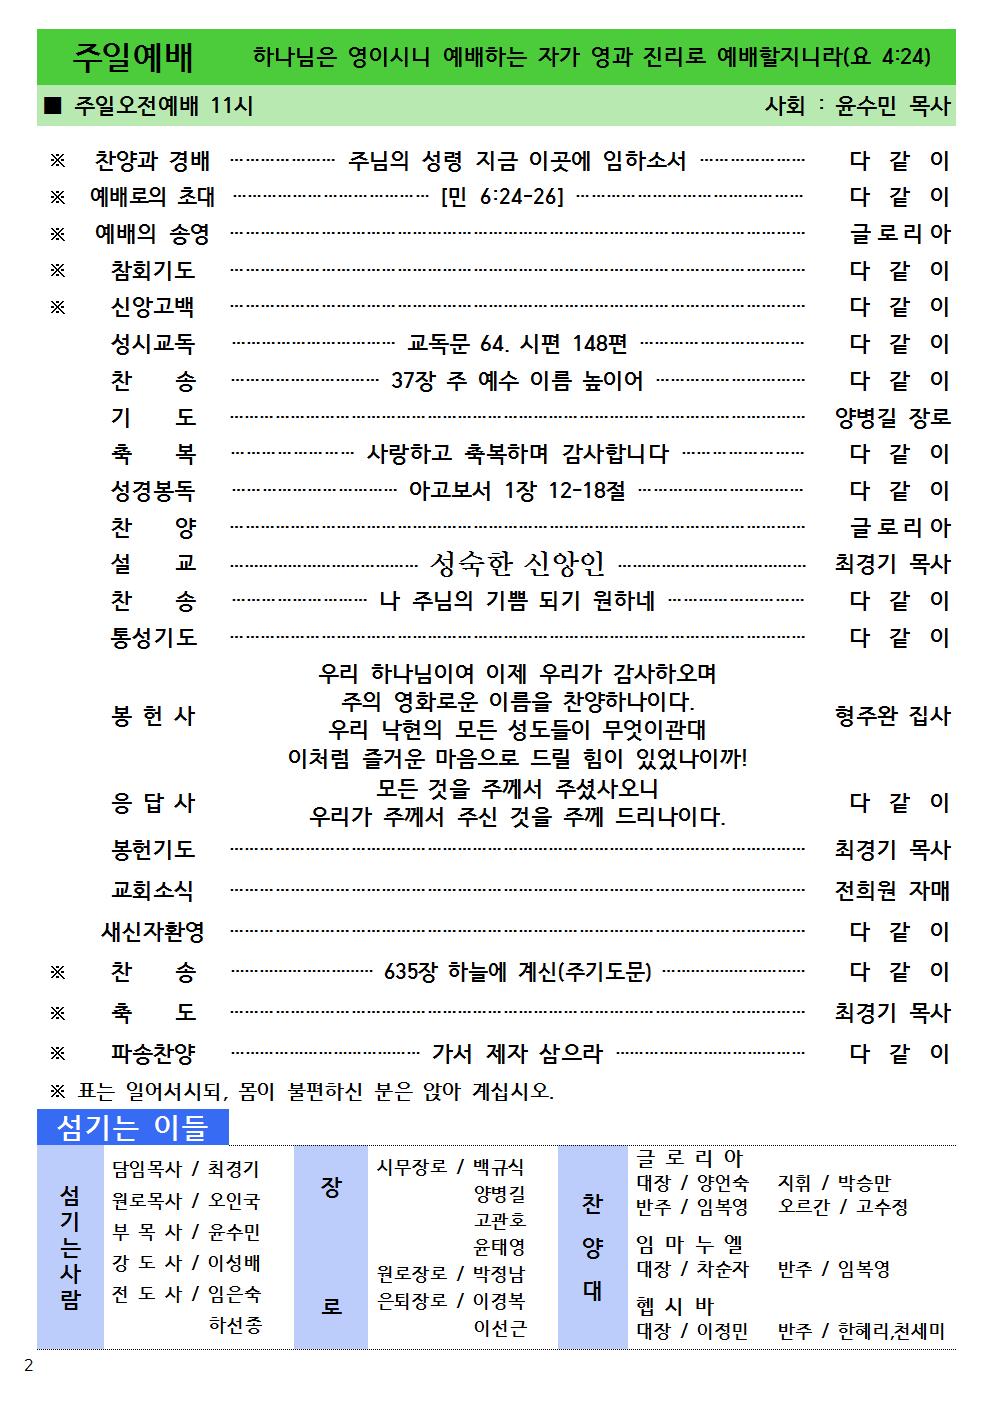 주일예배 하나님은 영이시니 예배하는 자가 영과 진리로 예배할지니라(요 4:24)
■ 주일오전예배 11시 사회 : 윤수민 목사
※ 찬양과 경배 ⋯ 주님의 성령 지금 이곳에 임하소서 ⋯ 다 같 이
※ 예배로의 초대 ⋯ [민 6:24-26] ⋯ 다 같 이
※ 예배의 송영 ⋯ 글로리아
※ 참회기도 ⋯ 다 같 이
※ 신앙고백 ⋯ 다 같 이
성시교독 ⋯ 교독문 64. 시편 148편 ⋯ 다 같 이
찬 송 ⋯ 37장 주 예수 이름 높이어 ⋯ 다 같 이
기 도 ⋯ 양병길 장로
축 복 ⋯ 사랑하고 축복하며 감사합니다 ⋯ 다 같 이
성경봉독 ⋯ 야고보서 1장 12-18절 ⋯ 다 같 이
찬 양 ⋯ 글로리아
설 교 ⋯ 성숙한 신앙인 ⋯ 최경기 목사
찬 송 ⋯ 나 주님의 기쁨 되기 원하네 ⋯ 다 같 이
통성기도 ⋯ 다 같 이
우리 하나님이여 이제 우리가 감사하오며
주의 영화로운 이름을 찬양하나이다.
봉 헌 사 우리 낙현의 모든 성도들이 무엇이관대 형주완 집사
이처럼 즐거운 마음으로 드릴 힘이 있었나이까!
모든 것을 주께서 주셨사오니
응 답 사 우리가 주께서 주신 것을 주께 드리나이다. 다 같 이
봉헌기도 ⋯ 최경기 목사
교회소식 ⋯ 전희원 자매
새신자환영 ⋯ 다 같 이
※ 찬 송 ⋯ 635장 하늘에 계신(주기도문) ⋯ 다 같 이
※ 축 도 ⋯ 최경기 목사
※ 파송찬양 ⋯ 가서 제자 삼으라 ⋯ 다 같 이
※ 표는 일어서시되, 몸이 불편하신 분은 앉아 계십시오.
섬기는 이들
섬기는사람
담임목사 / 최경기
원로목사 / 오인국
부 목 사 / 윤수민
강 도 사 / 이성배
전 도 사 / 임은숙
하선종
장로
시무장로 / 백규식
양병길
고관호
윤태영
원로장로 / 박정남
은퇴장로 / 이경복
이선근
찬양대
글 로 리 아
대장 / 양언숙 지휘 / 박승만
반주 / 임복영 오르간 / 고수정
임 마 누 엘
대장 / 차순자 반주 / 임복영
헵 시 바
대장 / 이정민 반주 / 한혜리,천세미
2